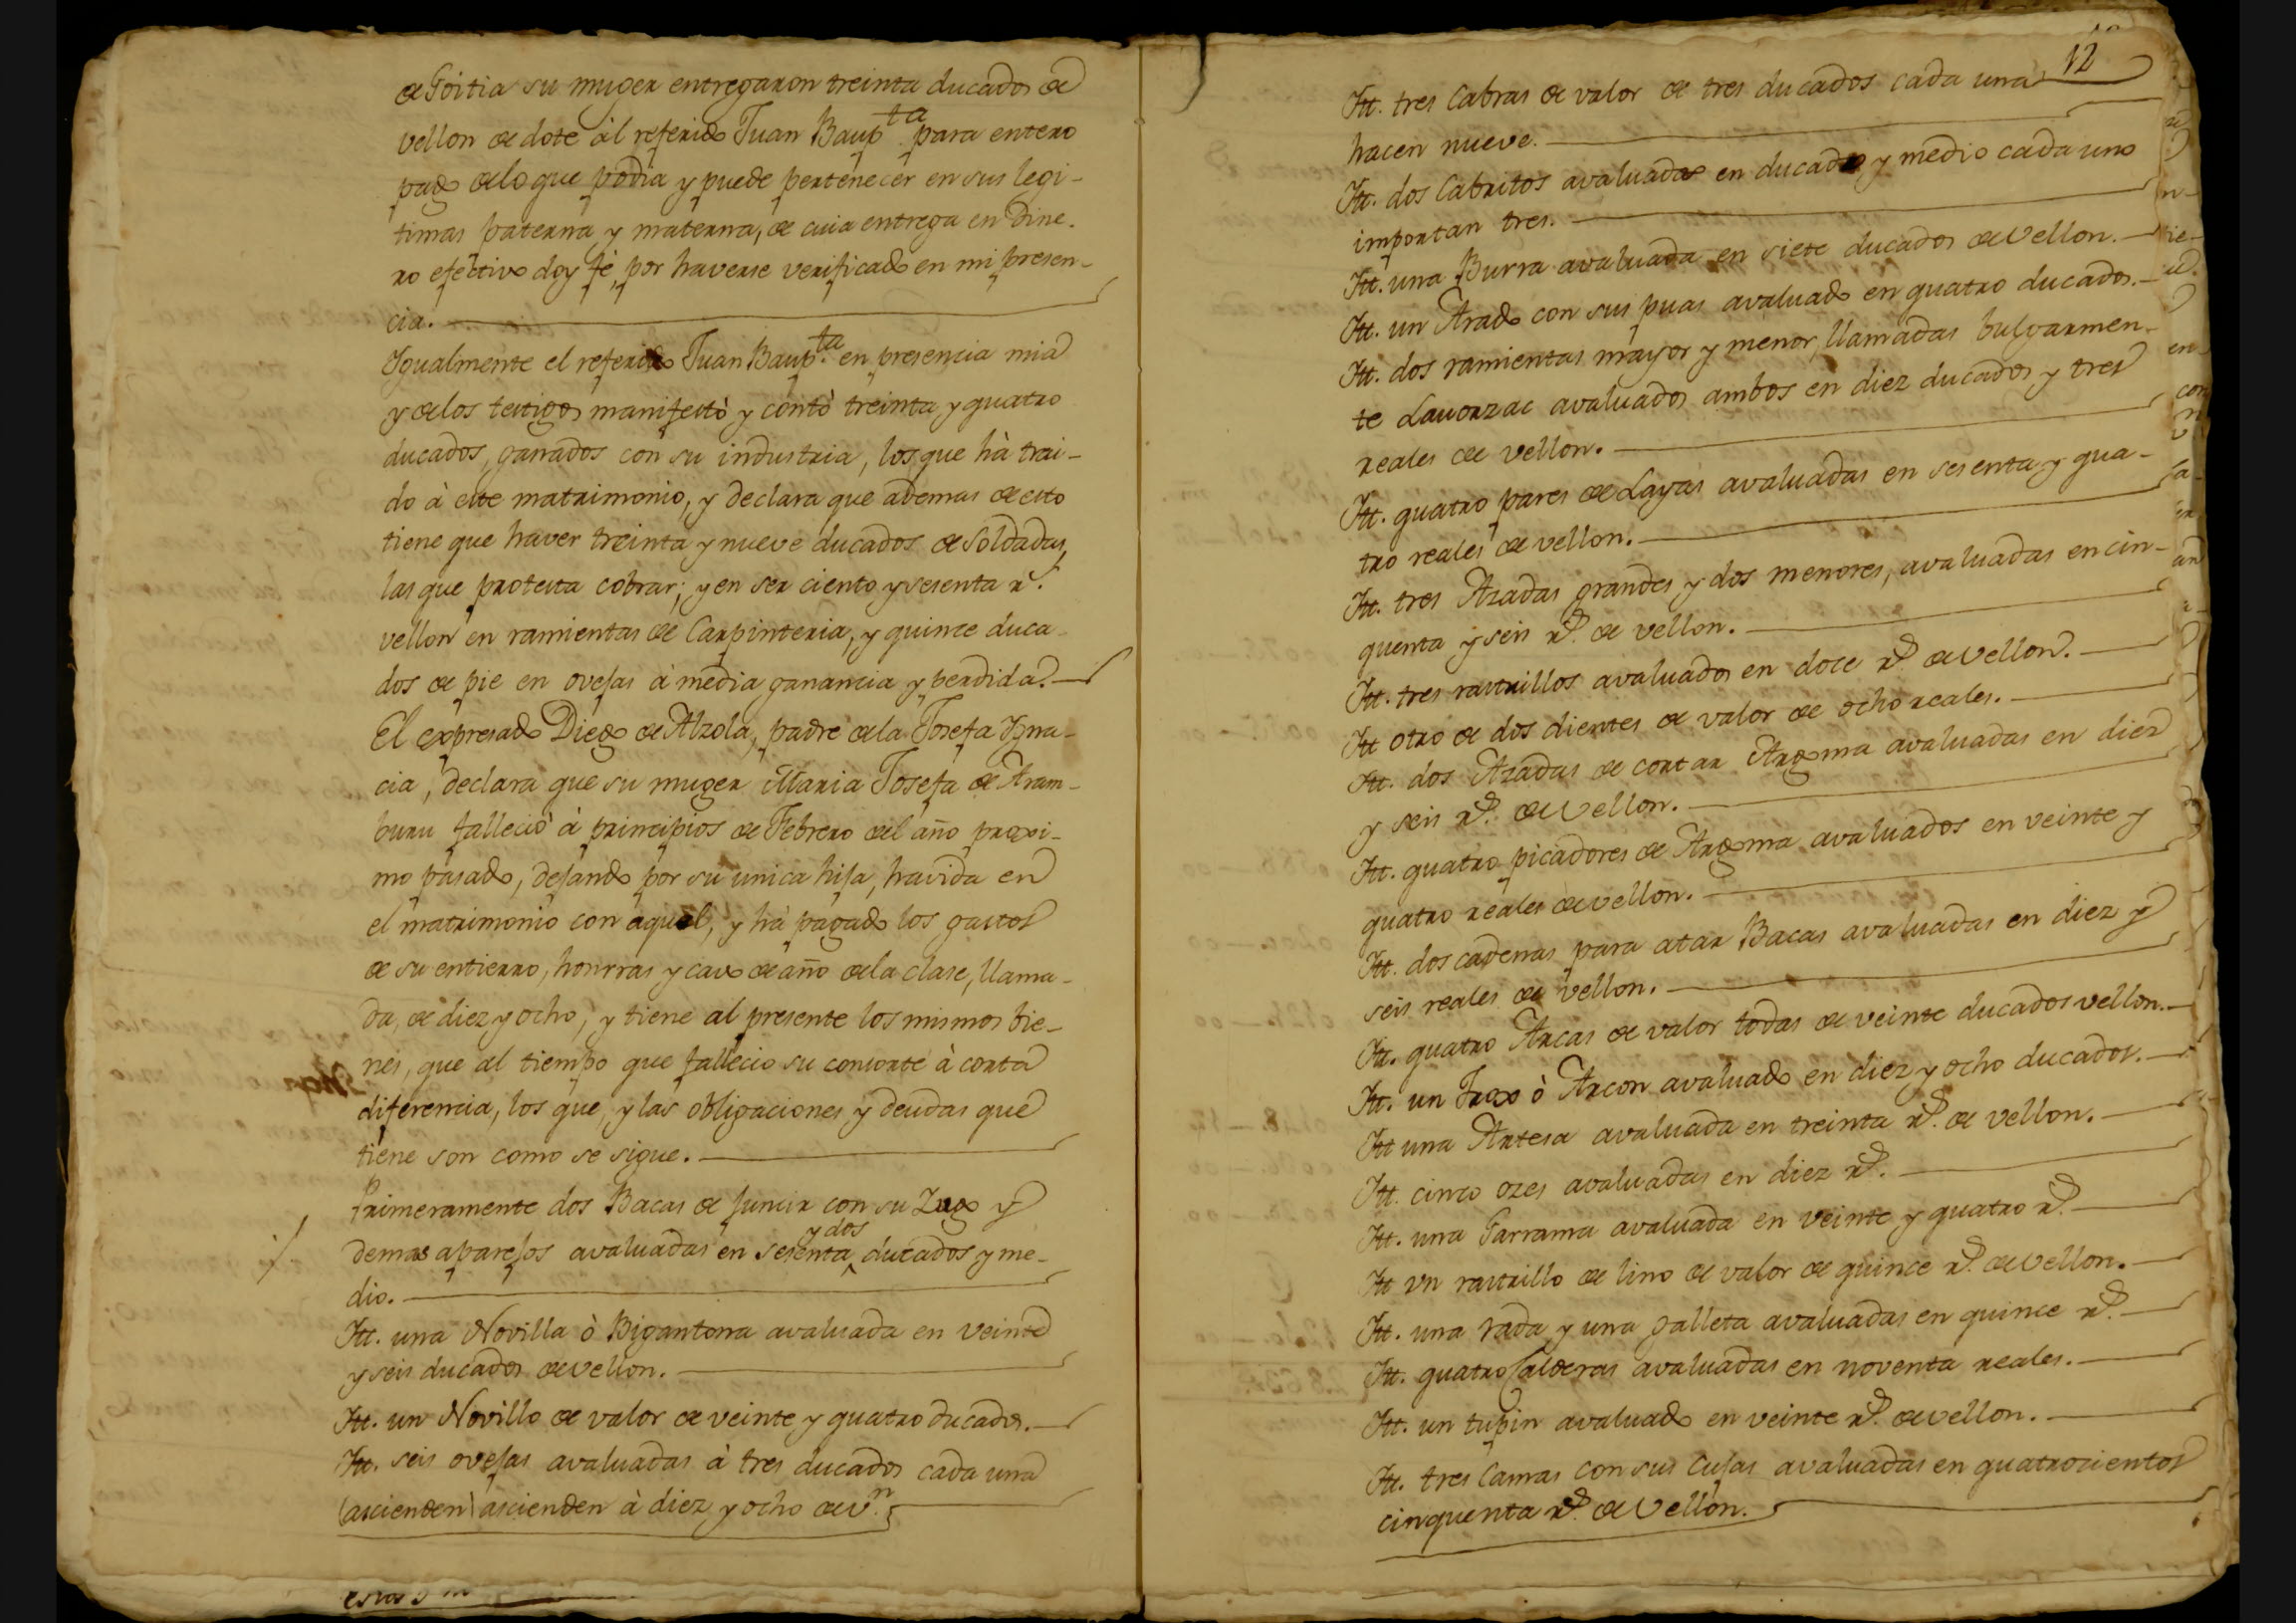 de Goitia su muger entregaron treinta ducados de
vellon de dote àl referido Juan Baupta. para entero
pago de lo que podia y puede pertenecer en sus legi-
timas paterna y materna, de cuia entrega en Dine-
ro efectivo doy fé, por haverse verificado en mi presen-
cia.
Ygualmente el referido Juan Baup.ta en presencia mia
y de los testigos manifestò y contò treinta y quatro
ducados, ganados con su industria, los que hà trai-
do à este matrimonio, y declara que ademas de esto
tiene que haver treinta y nueve ducados de Soldadas,
las que protesta cobrar; y en ser ciento y sesenta rs.
vellon en ramientas de Carpinteria, y quince duca-
dos de pie en ovejas à media ganancia y perdida.
El expresado Diego de Alzola, padre de la Josefa Ygna-
cia, declara que su muger Maria Josefa de Aram-
buru falleciò à principios de Febrero del año proxi-
mo pasado, dejando por su unica hija, havida en
el matrimonio con aquel, y hà pagado los gastos
de su entierro, honrras y cavo de año de la clase, llama-
da, de diez y ocho, y tiene al presente los mismos bie-
nes, que al tiempo que fallecio su consorte à corta
diferencia, los que, y las obligaciones y deudas que
tiene son como se sigue.
Primeramente dos Bacas de juncir con su Zugo y
demas aparejos avaluadas en sesenta y dos ducados y me-
dio.
Itt. una Novilla ò Bigantona avaluada en veinte
y seis ducados de vellon.
Itt. un Novillo de valor de veinte y quatro ducados.
Itt. seis ovejas avaluadas à tres ducados cada una
(ascienden) ascienden à diez y ocho de vn.
12
Itt. tres Cabras de valor de tres ducados cada una
hacen nueve.
Itt. dos Cabritos avaluados en ducado y medio cada uno
importan tres.
Itt. una Burra avaluada en siete ducados de Vellon.
Itt. un Arado con sus puas avaluado en quatro ducados.
Itt. dos ramientas mayor y menor, llamadas bulgarmen-
te Lavorzac avaluados ambos en diez ducados y tres
reales de vellon.
Itt. quatro pares de Layas avaluadas en sesenta y qua-
tro reales de vellon.
Itt. tres Azadas grandes, y dos menores, avaluadas en cin-
quenta y seis rs. de vellon.
Itt. tres rastrillos avaluados en doce rs. de Vellon.
Itt otro de dos dientes de valor de ocho reales.
Itt. dos Azadas de cortar Argoma avaluadas en diez
y seis rs. de Vellon.
Itt. quatro picadores de Argoma avaluados en veinte y
quatro reales de vellon.
Itt. dos cadenas para atar Bacas avaluadas en diez y
seis reales de vellon.
Itt. quatro Arcas de valor todas de veinte ducados vellon.
Itt. un Trox ò Arcon avaluado en diez y ocho ducados.
Itt una Artesa avaluada en treinta rs. de vellon.
Itt. cinco ozes avaluadas en diez rs.
Itt. una Garrama avaluada en veinte y quatro rs.
Itt vn rastrillo de lino de valor de quince rs. de Vellon.
Itt. una rada y una palleta avaluadas en quince rs.
Itt. quatro Calderas avaluadas en noventa reales.
Itt. un tupin avaluado en veinte rs. de vellon.
Itt. tres Camas con sus Cujas avaluadas en quatrocientos
cinquenta rs. de Vellon.